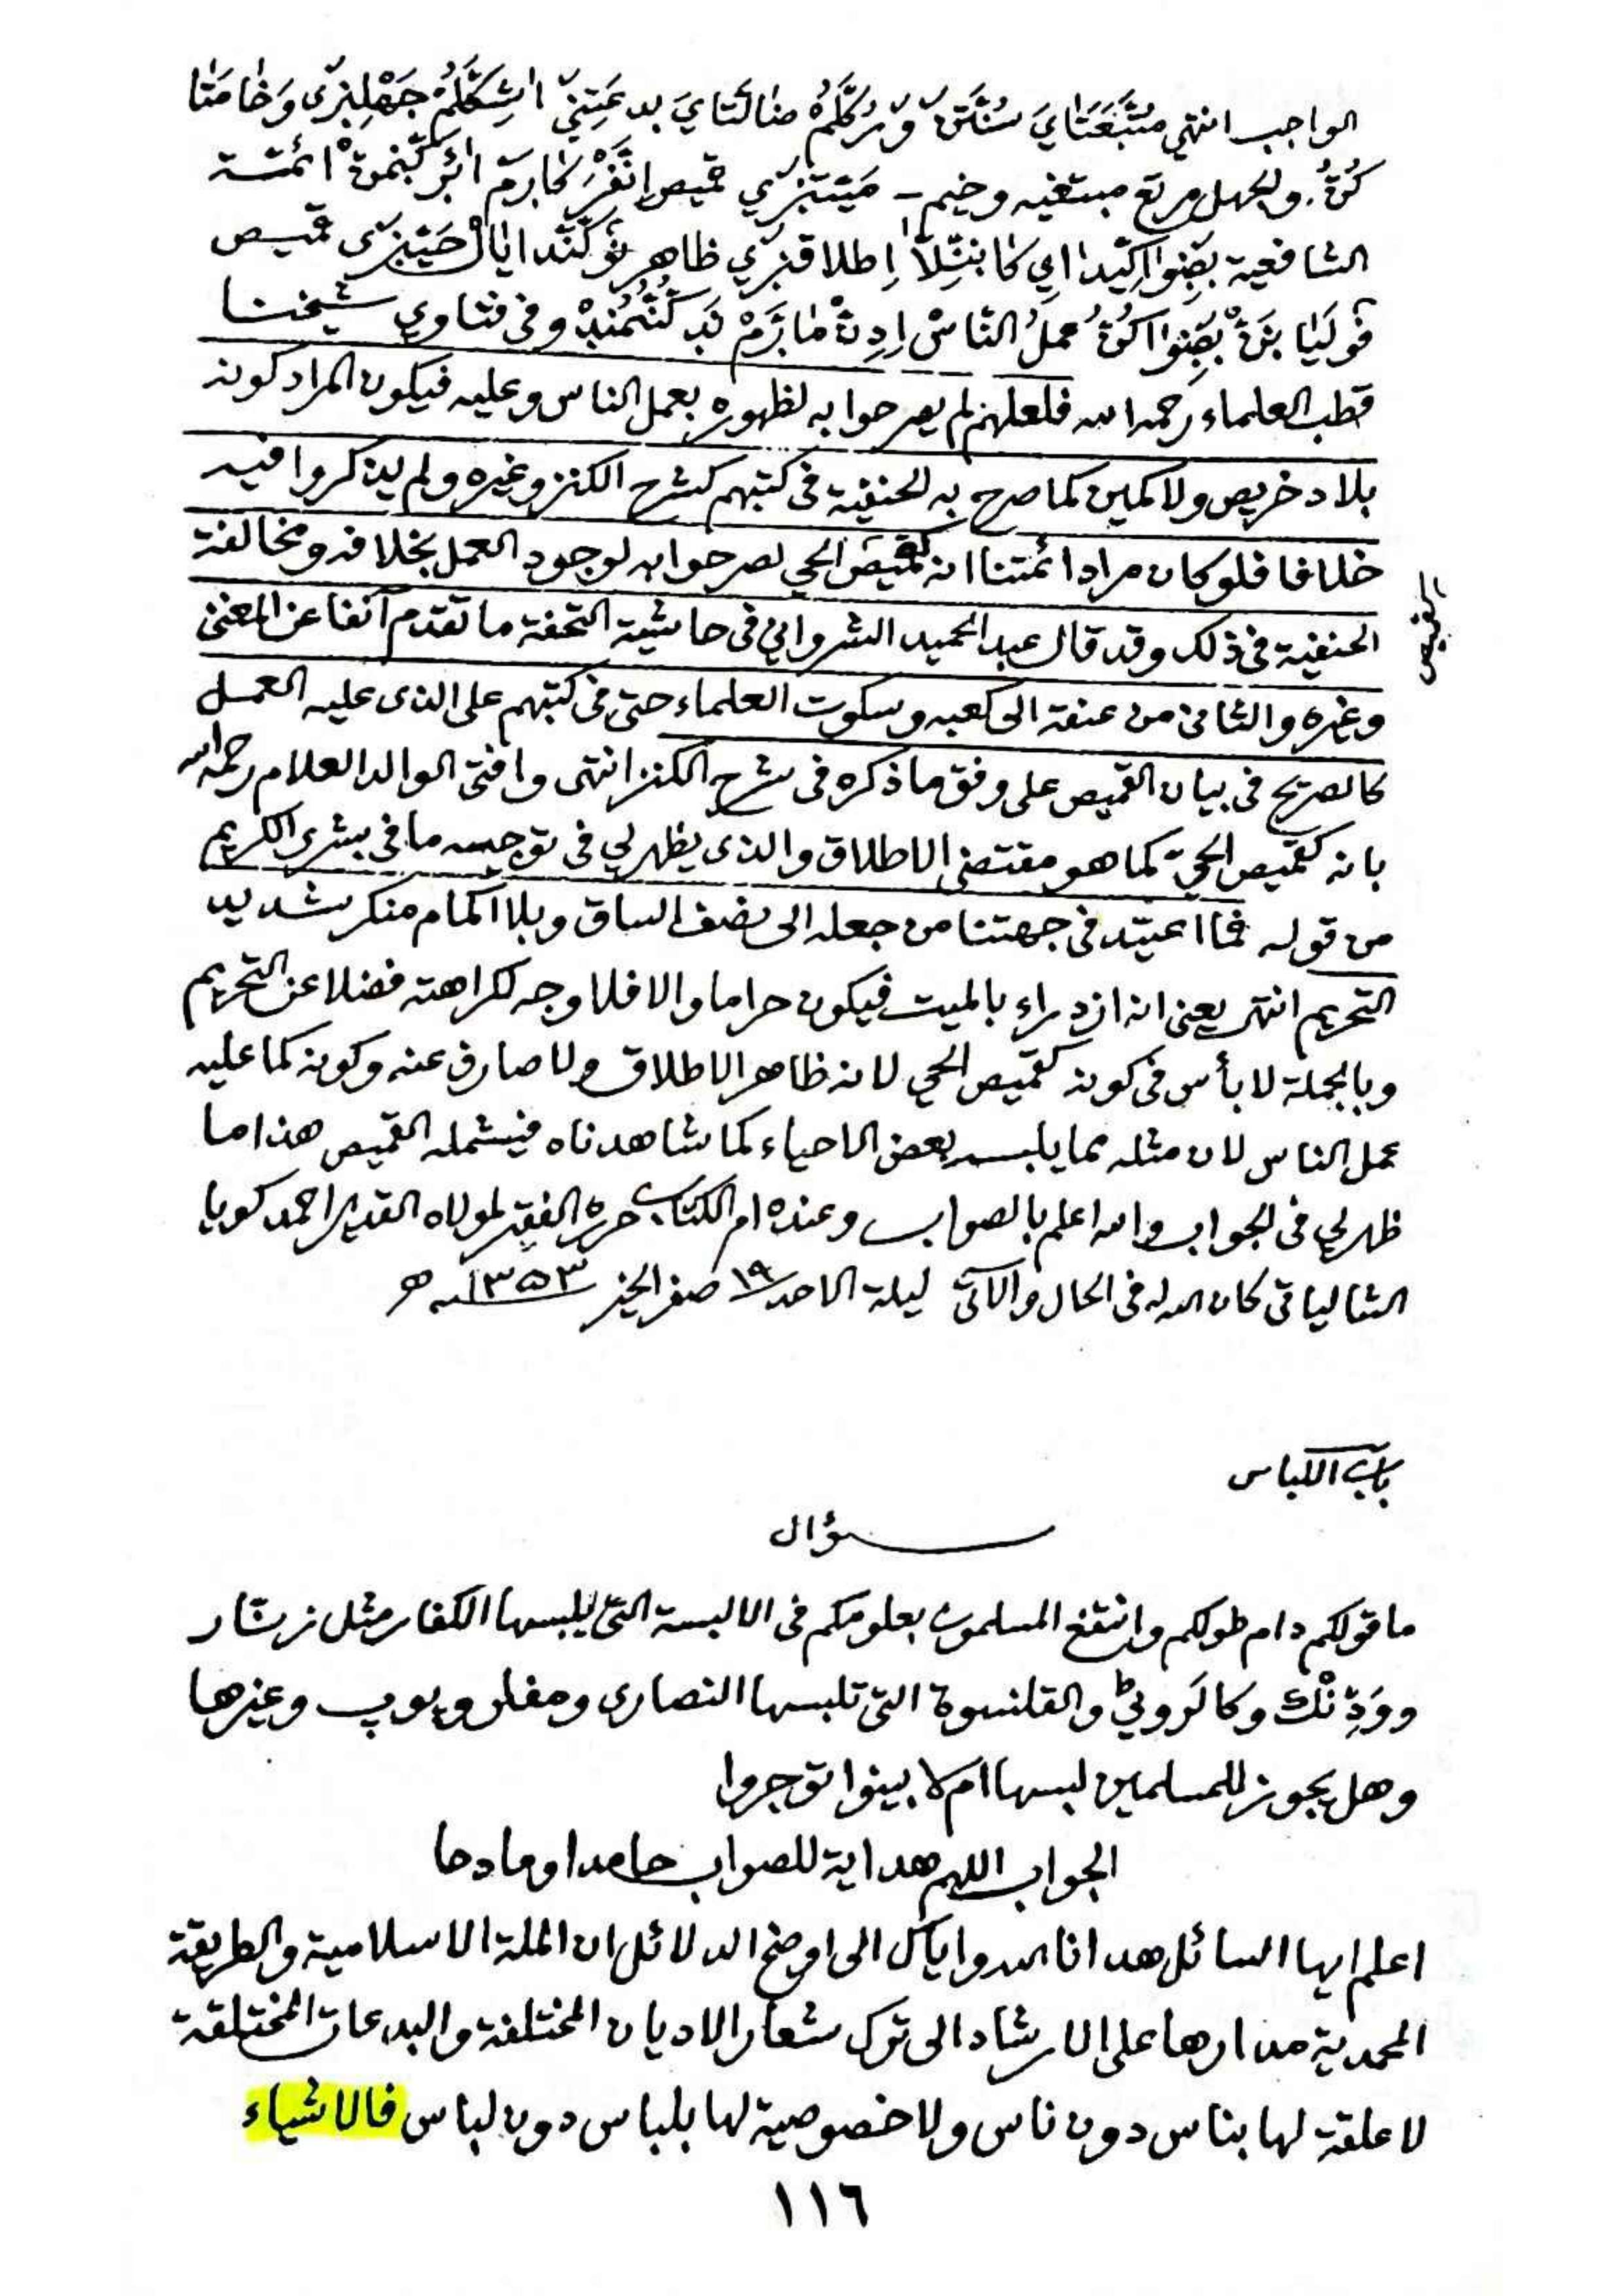 الواجب انتهي
كُنُ. والجهل مرتع مبتغيه وخيم - قميص ائمتنا
الشافعية ظاهر قميص
عمل الناس وفي فتاوي شيخنا
قطب العلماء رحمه الله فلعلهم لم يصرحوا به لظهوره بعمل الناس وعليه فيكون المراد كونه
بلا دخريص ولا كمين كما صرح به الحنفية في كتبهم كشرح الكنز وغيره ولم يذكروا فيه
خلافا فلو كان مراد ائمتنا انه كقميص الحي لصرحوا به لوجود العمل بخلافه ومخالفة
الحنفية في ذلك وقد قال عبد الحميد الشرواني في حاشية التحفة ما تقدم آنفا عن المغني
وغيره والثاني من عنقه الى كعبه وسكوت العلماء حتى في كتبهم على الذى عليه العمل
كالصريح في بيان القميص على وفق ما ذكره في شرح الكنز انتهى وافتى الوالد العلام رحمه الله
بانه كقميص الحيّ كما هو مقتضى الاطلاق والذى يظهر لي في توجيه ما في بشرى الكريم
من قوله فما اعتيد في جهتنا من جعله الى نصف الساق وبلا اكمام منكر شديد
التحريم انتهى يعنى انه ازدراء بالميت فيكون حراما والا فلا وجه لكراهته فضلا عن التحريم
وبالجملة لا بأس في كونه كقميص الحي لانه ظاهر الاطلاق ولا صارف عنه وكونه كما عليه
عمل الناس لان مثله مما يلبسه بعض الاحياء كما شاهدناه فيشمله القميص هذا ما
ظهر لي في الجواب والله اعلم بالصواب وعنده ام الكتاب حرره الفقير لمولاه القدير احمد كويا
الشالياتي كان الله له في الحال والآتي ليلة الاحد ١٩ صفر الخير ١٣٥٣ ه
باب اللباس
سؤال
ما قولكم دام طولكم وانتفع المسلمون بعلومكم في الالبسة التي يلبسها الكفار مثل زنار
والقلنسوة التي تلبسها النصارى ومفلر وبوب وغيرها
وهل يجوز للمسلمين لبسها ام لا بينوا توجروا
الجواب اللهم هداية للصواب حامدا ومادحا
اعلم ايها السائل هدانا الله واياك الى اوضح الدلائل ان الملة الاسلامية والطريقة
المحمدية مدارها على الارشاد الى ترك شعار الاديان المختلفة والبدعات المختلقة
لا علقة لها بناس دون ناس ولا خصوصية لها بلباس دون لباس فالاشياء
١١٦